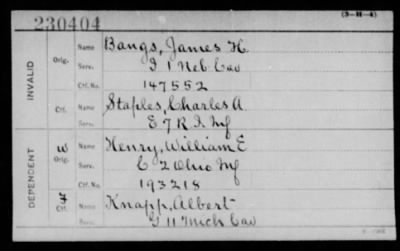 230404
(3-H-4)
INVALID
Orig.
Name Bangs, James H.
Serv. I 1 Neb Cav
Ctf. No. 147552
Ctf.
Name Staples, Charles A.
Serv. E 7 R.I. Inf
DEPENDENT
W
Orig.
Name Henry, William E
Serv. C 2 Ohio Inf
Ctf. No. 193218
Ctf.
Name Knapp, Albert
Serv. G 11 Mich Cav